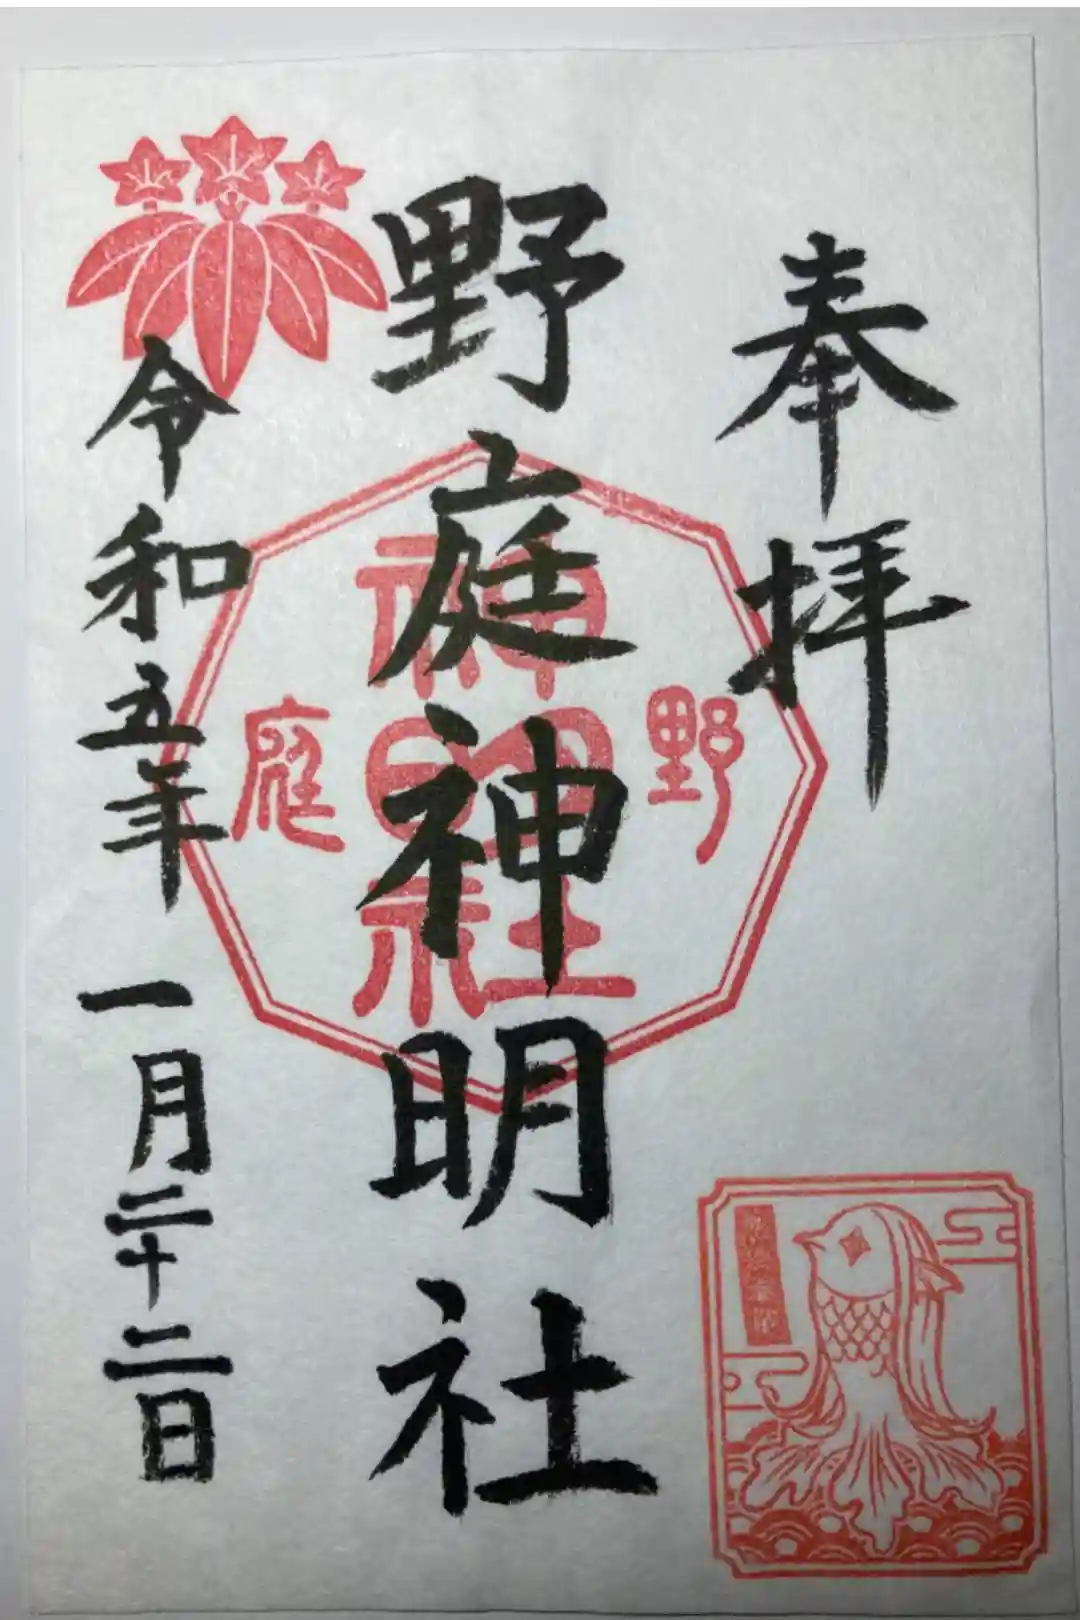 奉拝
野庭神明社
令和五年 一月二十二日
野
神明社
庭